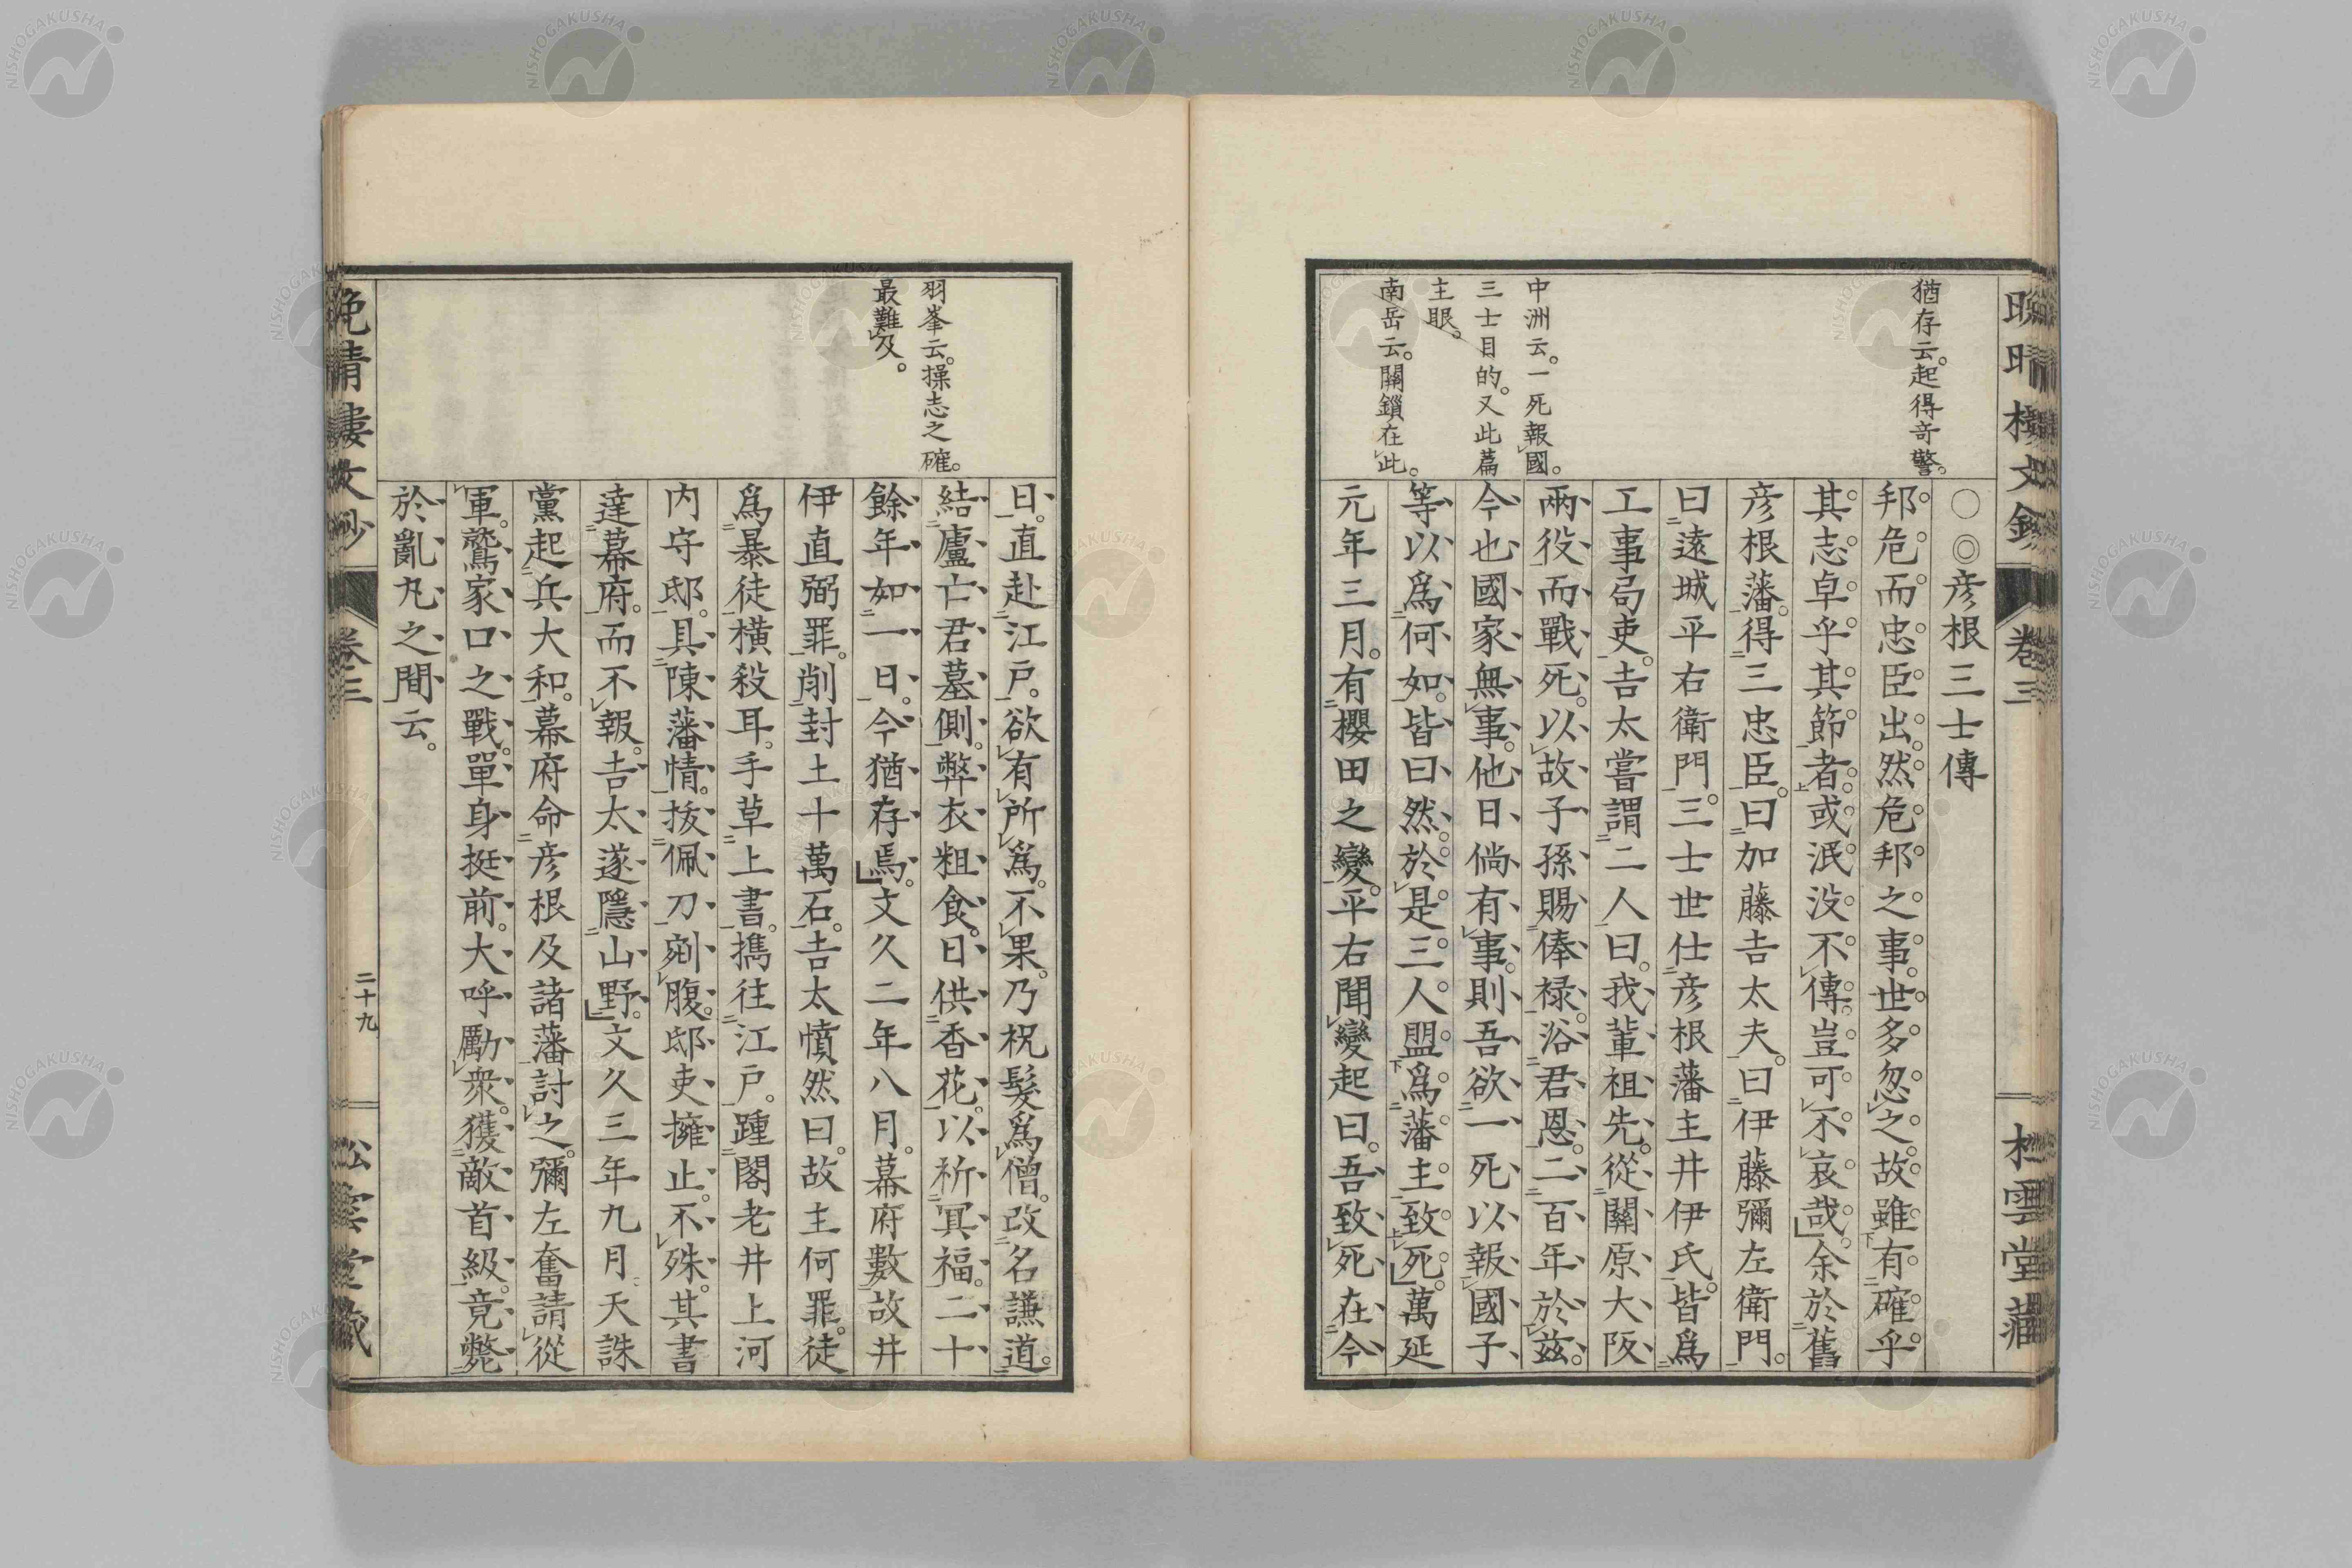 晩晴樓文鈔 卷三 松雲堂藏
猶存云。起得奇警。
中洲云。一死報國。
三士目的。又此篇
主眼。
南岳云。關鎖在此。
○◎彦根三士傳
邦危而忠臣出。然危邦之事。世多忽之。故雖有確乎
其志卓乎其節者。或泯没不傳。豈可不哀哉。余於舊
彦根藩。得三忠臣。曰加藤吉太夫。曰伊藤彌左衛門。
曰遠城平右衛門。三士世仕彦根藩主井伊氏。皆爲
工事局吏。吉太嘗謂二人曰。我輩祖先。從關原大阪
兩役。而戰死。以故子孫賜俸禄。浴君恩。二百年於茲。
今也國家無事。他日倘有事。則吾欲一死以報國。子
等以爲何如。皆曰然。於是。三人盟爲藩主致死。萬延
元年三月。有櫻田之變。平右聞變起曰。吾致死在今
羽峯云。操志之確。
最難及。
日。直赴江戸。欲有所爲。不果。乃祝髮爲僧。改名謙道。
結廬亡君墓側。弊衣粗食。日供香花。以祈冥福。二十
餘年如一日。今猶存焉。文久二年八月。幕府數故井
伊直弼罪。削封土十萬石。吉太憤然曰。故主何罪。徒
爲暴徒横殺耳。手草上書。擕往江戸。踵閣老井上河
内守邸。具陳藩情。拔佩刀剜腹。邸吏擁止。不殊。其書
達幕府。而不報。吉太遂隱山野。文久三年九月。天誅
黨起兵大和。幕府命彦根及諸藩討之。彌左奮請從
軍。鷲家口之戰。單身挺前。大呼勵衆。獲敵首級。竟斃
於亂丸之間云。
晩晴樓文鈔 卷三 二十九 松雲堂藏
NISHOGAKUSHA